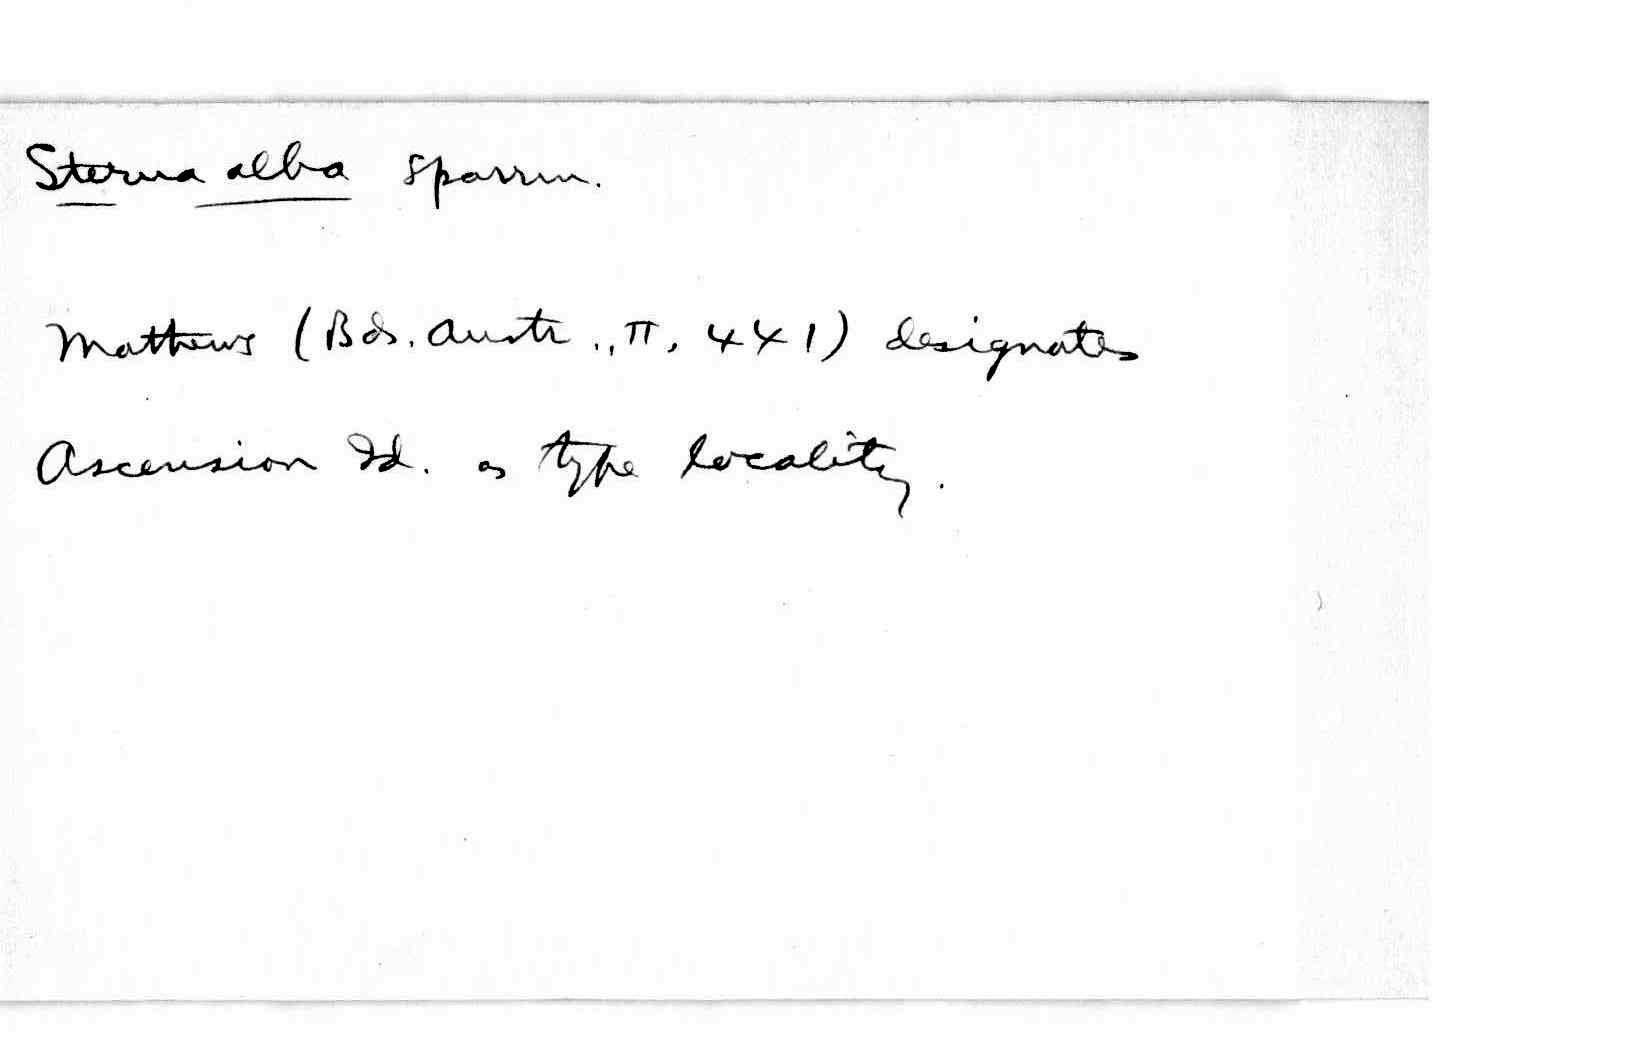 Sterna alba Sparrm.
Mathews (Bds. Austr., II, 441) designates
Ascension Id. as type locality.